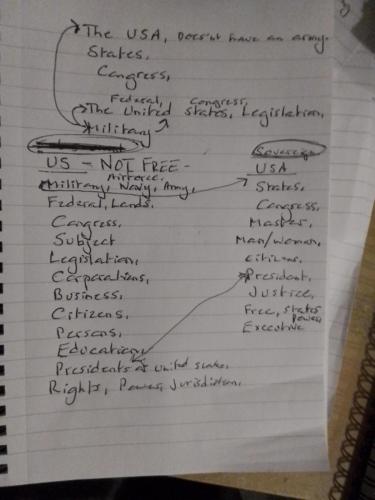 The USA, Doesn't have an army.
States,
Congress,
Federal, Congress,
The United States, Legislation,
Military
US - NOT FREE -
Airforce,
Military, Navy, Army,
Federal, Lands.
Congress,
Subject
Legislation,
Corporations,
Business,
Citizens,
Persons,
Education,
Presidents of United States.
Rights, Power, Jurisdiction.
Sovereign
USA
States,
Congress,
Master,
Man/Woman,
Citizens,
President,
Justice,
Free, States
Power,
Executive